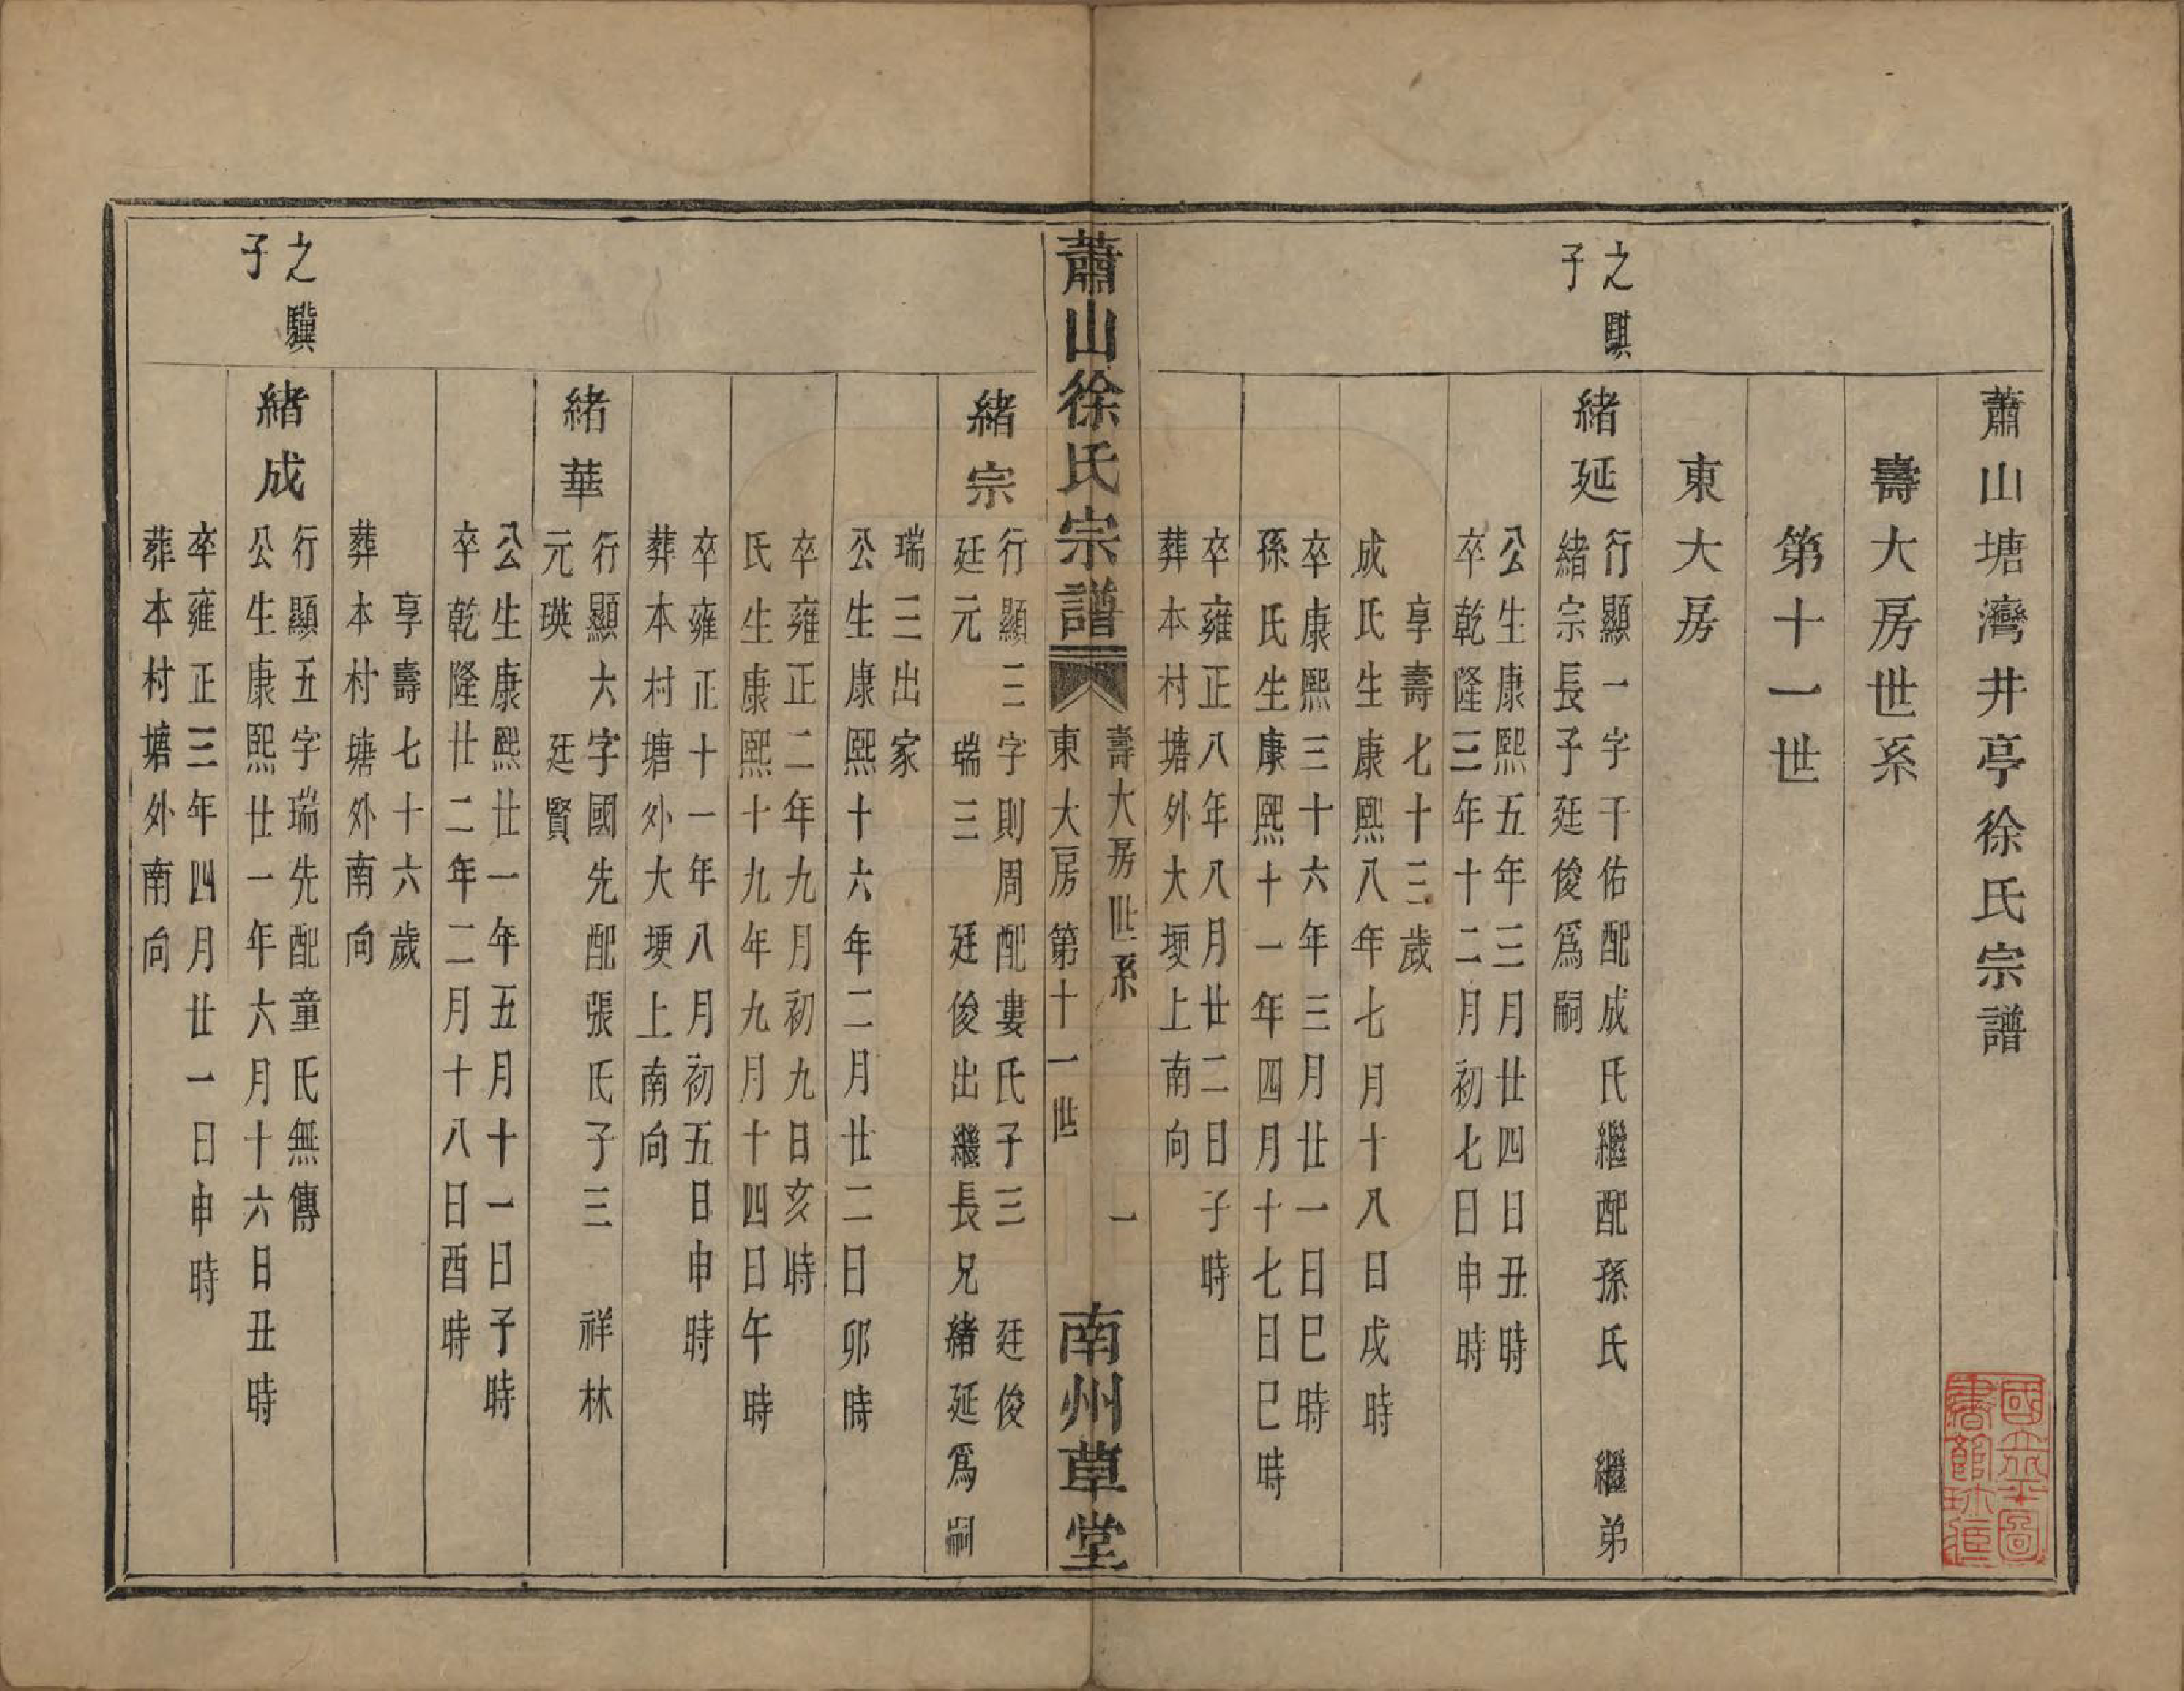 蕭山塘灣井亭徐氏宗譜
壽大房世系
第十一世
東大房
之騏
子
緒延
行顯一字干佑配成氏繼配孫氏 繼弟
緒宗長子廷俊爲嗣
公生康熙五年三月廿四日丑時
卒乾隆三年十二月初七日申時
享壽七十三歲
成氏生康熙八年七月十八日戌時
卒康熙三十六年三月廿一日巳時
孫氏生康熙十一年四月十七日巳時
卒雍正八年八月廿二日子時
葬本村塘外大埂上南向
蕭山徐氏宗譜
壽大房世系 一
東大房第十一世
南州草堂
緒宗
行顯三字則周配婁氏子三 廷俊
廷元 瑞三 廷俊出繼長兄緒延爲嗣
瑞三出家
公生康熙十六年二月廿二日卯時
卒雍正二年九月初九日亥時
氏生康熙十九年九月十四日午時
卒雍正十一年八月初五日申時
葬本村塘外大埂上南向
緒華
行顯六字國先配張氏子三 祥林
元瑛 廷賢
公生康熙廿一年五月十一日子時
卒乾隆廿二年二月十八日酉時
享壽七十六歲
葬本村塘外南向
之驥
子
緒成
行顯五字瑞先配童氏無傳
公生康熙廿一年六月十六日丑時
卒雍正三年四月廿一日申時
葬本村塘外南向